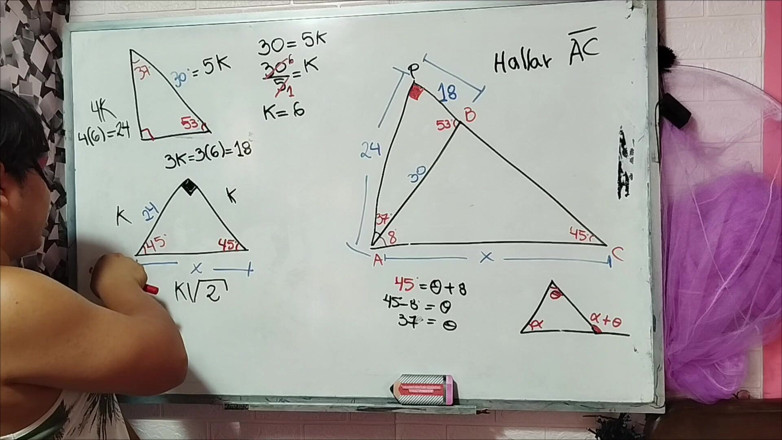 37
30 = 5K
4K
4(6)=24
53
3K=3(6)=18
30 = 5K
30 6 = K
5 1
K = 6
Hallar AC
P
18
B
53
24
30
37
8
45
A
x
C
K
24
K
45°
45
x
K√2
45° = θ + 8
45-8 = θ
37 = θ
θ
α
α+θ